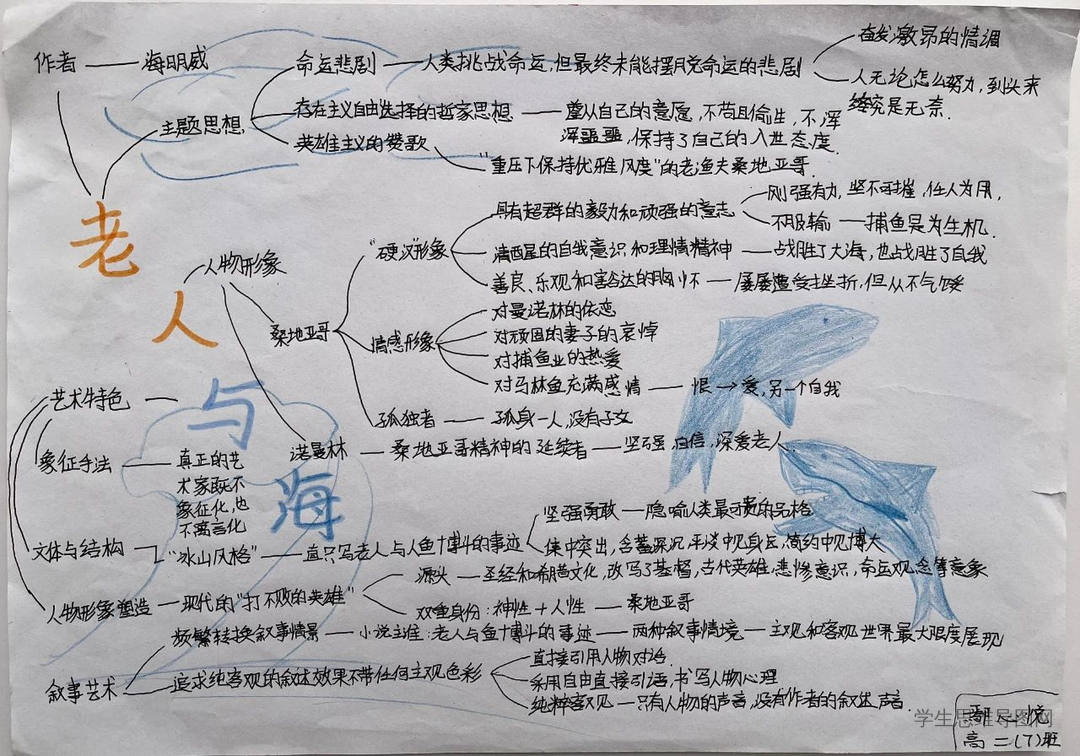 作者 海明威
主题思想
命运悲剧 人类挑战命运,但最终未能摆脱命运的悲剧
奋发激昂的情调
人无论怎么努力,到头来
终究是无奈.
存在主义自由选择的哲家思想 遵从自己的意愿,不苟且偷生,不浑
浑噩噩,保持了自己的入世态度.
英雄主义的赞歌
"重压下保持优雅风度"的老渔夫桑地亚哥.
老
人
与
海
人物形象
桑地亚哥
"硬汉"形象
具有超群的毅力和顽强的意志
刚强有力,坚不可摧,任人为用,
不服输 捕鱼是为生机.
清西星的自我意识和理情精神 战胜了大海,也战胜了自我
善良、乐观和豁达的胸怀 屡屡遭受挫折,但从不气馁
情感形象
对曼诺林的依恋
对顽固的妻子的哀悼
对捕鱼业的热爱
对马林鱼充满感情 恨→爱,另一个自我
孤独者 孤身一人,没有子女
诺曼林 桑地亚哥精神的延续者 坚强,自信,深爱老人.
艺术特色
象征手法
真正的艺
术家既不
象征化,也
不寓言化
文体与结构 "冰山风格" 直只写老人与人鱼搏斗的事迹
坚强勇敢 隐喻人类最可贵的品格
集中突出,含蓄深沉,平淡中见,简约中见博大
人物形象塑造 现代的"打不败的英雄"
源头 圣经和希腊文化,改写了基督,古代英雄,悲惨意识,命运观念等意象
双重身份:神性+人性 桑地亚哥
叙事艺术
频繁转换叙事情景 小说主准:老人与鱼搏斗的事迹 两种叙事情境 主观和客观世界最大限度展现
追求纯客观的叙述效果不带任何主观色彩
直接引用人物对话
采用自由直接引语,书写人物心理
纯粹客观 只有人物的声音,没有作者的叙述声音.
学生思维导图网
悦
高二(7)班